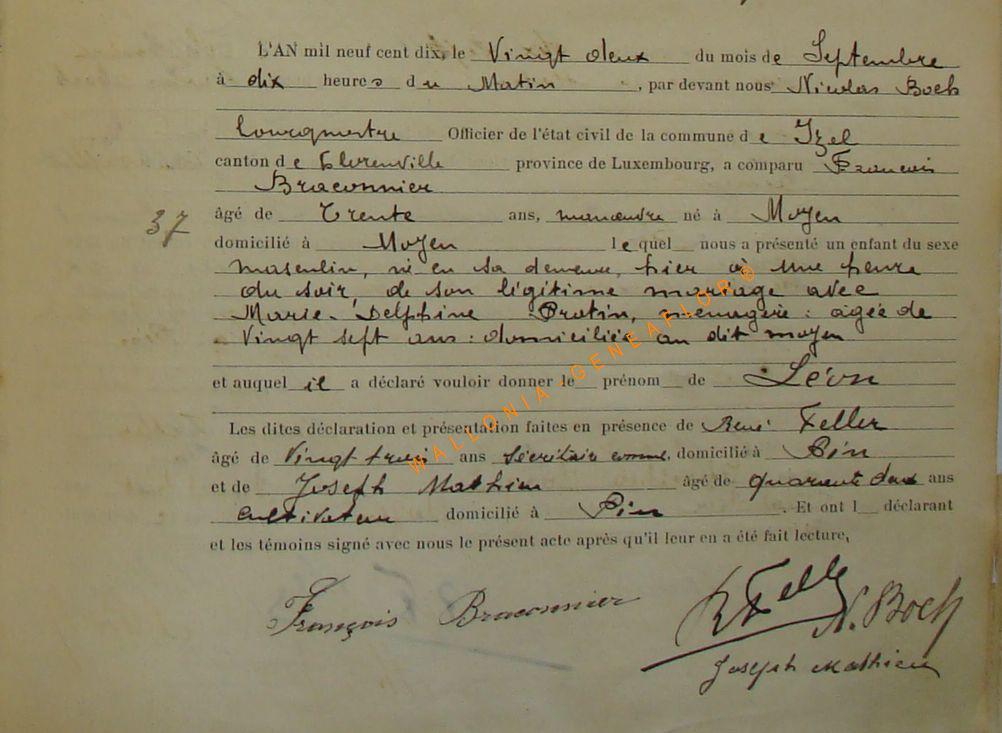 L'AN mil neuf cent dix, le Vingt deux du mois de Septembre
à dix heures du Matin, par devant nous Nicolas Boch
bourgmestre Officier de l'état civil de la commune de Izel
canton de Florenville province de Luxembourg, a comparu François
Braconnier
37
âgé de Trente ans, manœuvre né à Moyen
domicilié à Moyen lequel nous a présenté un enfant du sexe
masculin, né en sa demeure, hier à une heure
du soir, de son légitime mariage avec
Marie-Delphine Protin, ménagère: agée de
Vingt sept ans: domiciliée au dit moyen
et auquel il a déclaré vouloir donner le prénom de Léon
Les dites déclaration et présentation faites en présence de René Feller
âgé de Vingt trois ans Secrétaire comm. domicilié à Pin
et de Joseph Mathieu âgé de quarante deux ans
cultivateur domicilié à Pin. Et ont l déclarant
et les témoins signé avec nous le présent acte après qu'il leur en a été fait lecture,
François Braconnier
R Feller
N. Boch
Joseph Mathieu
WALLONIA-GENEAFLOR©